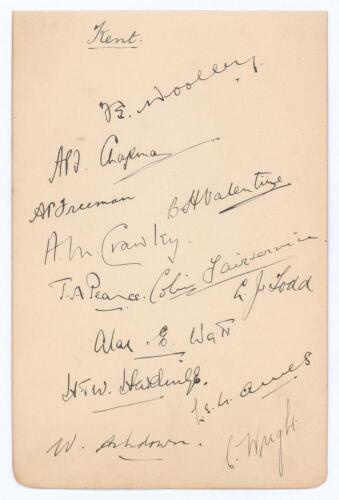 Kent.
F.E. Woolley.
A.P.F. Chapman
A P Freeman
B H Valentine
A. M. Crawley.
T. A Pearce. Colin Fairservice.
L. J. Todd
Alan. E. Watt
H.T.W. Hardinge.
L. E. G. Ames
W. Ashdown.
C. Wright.